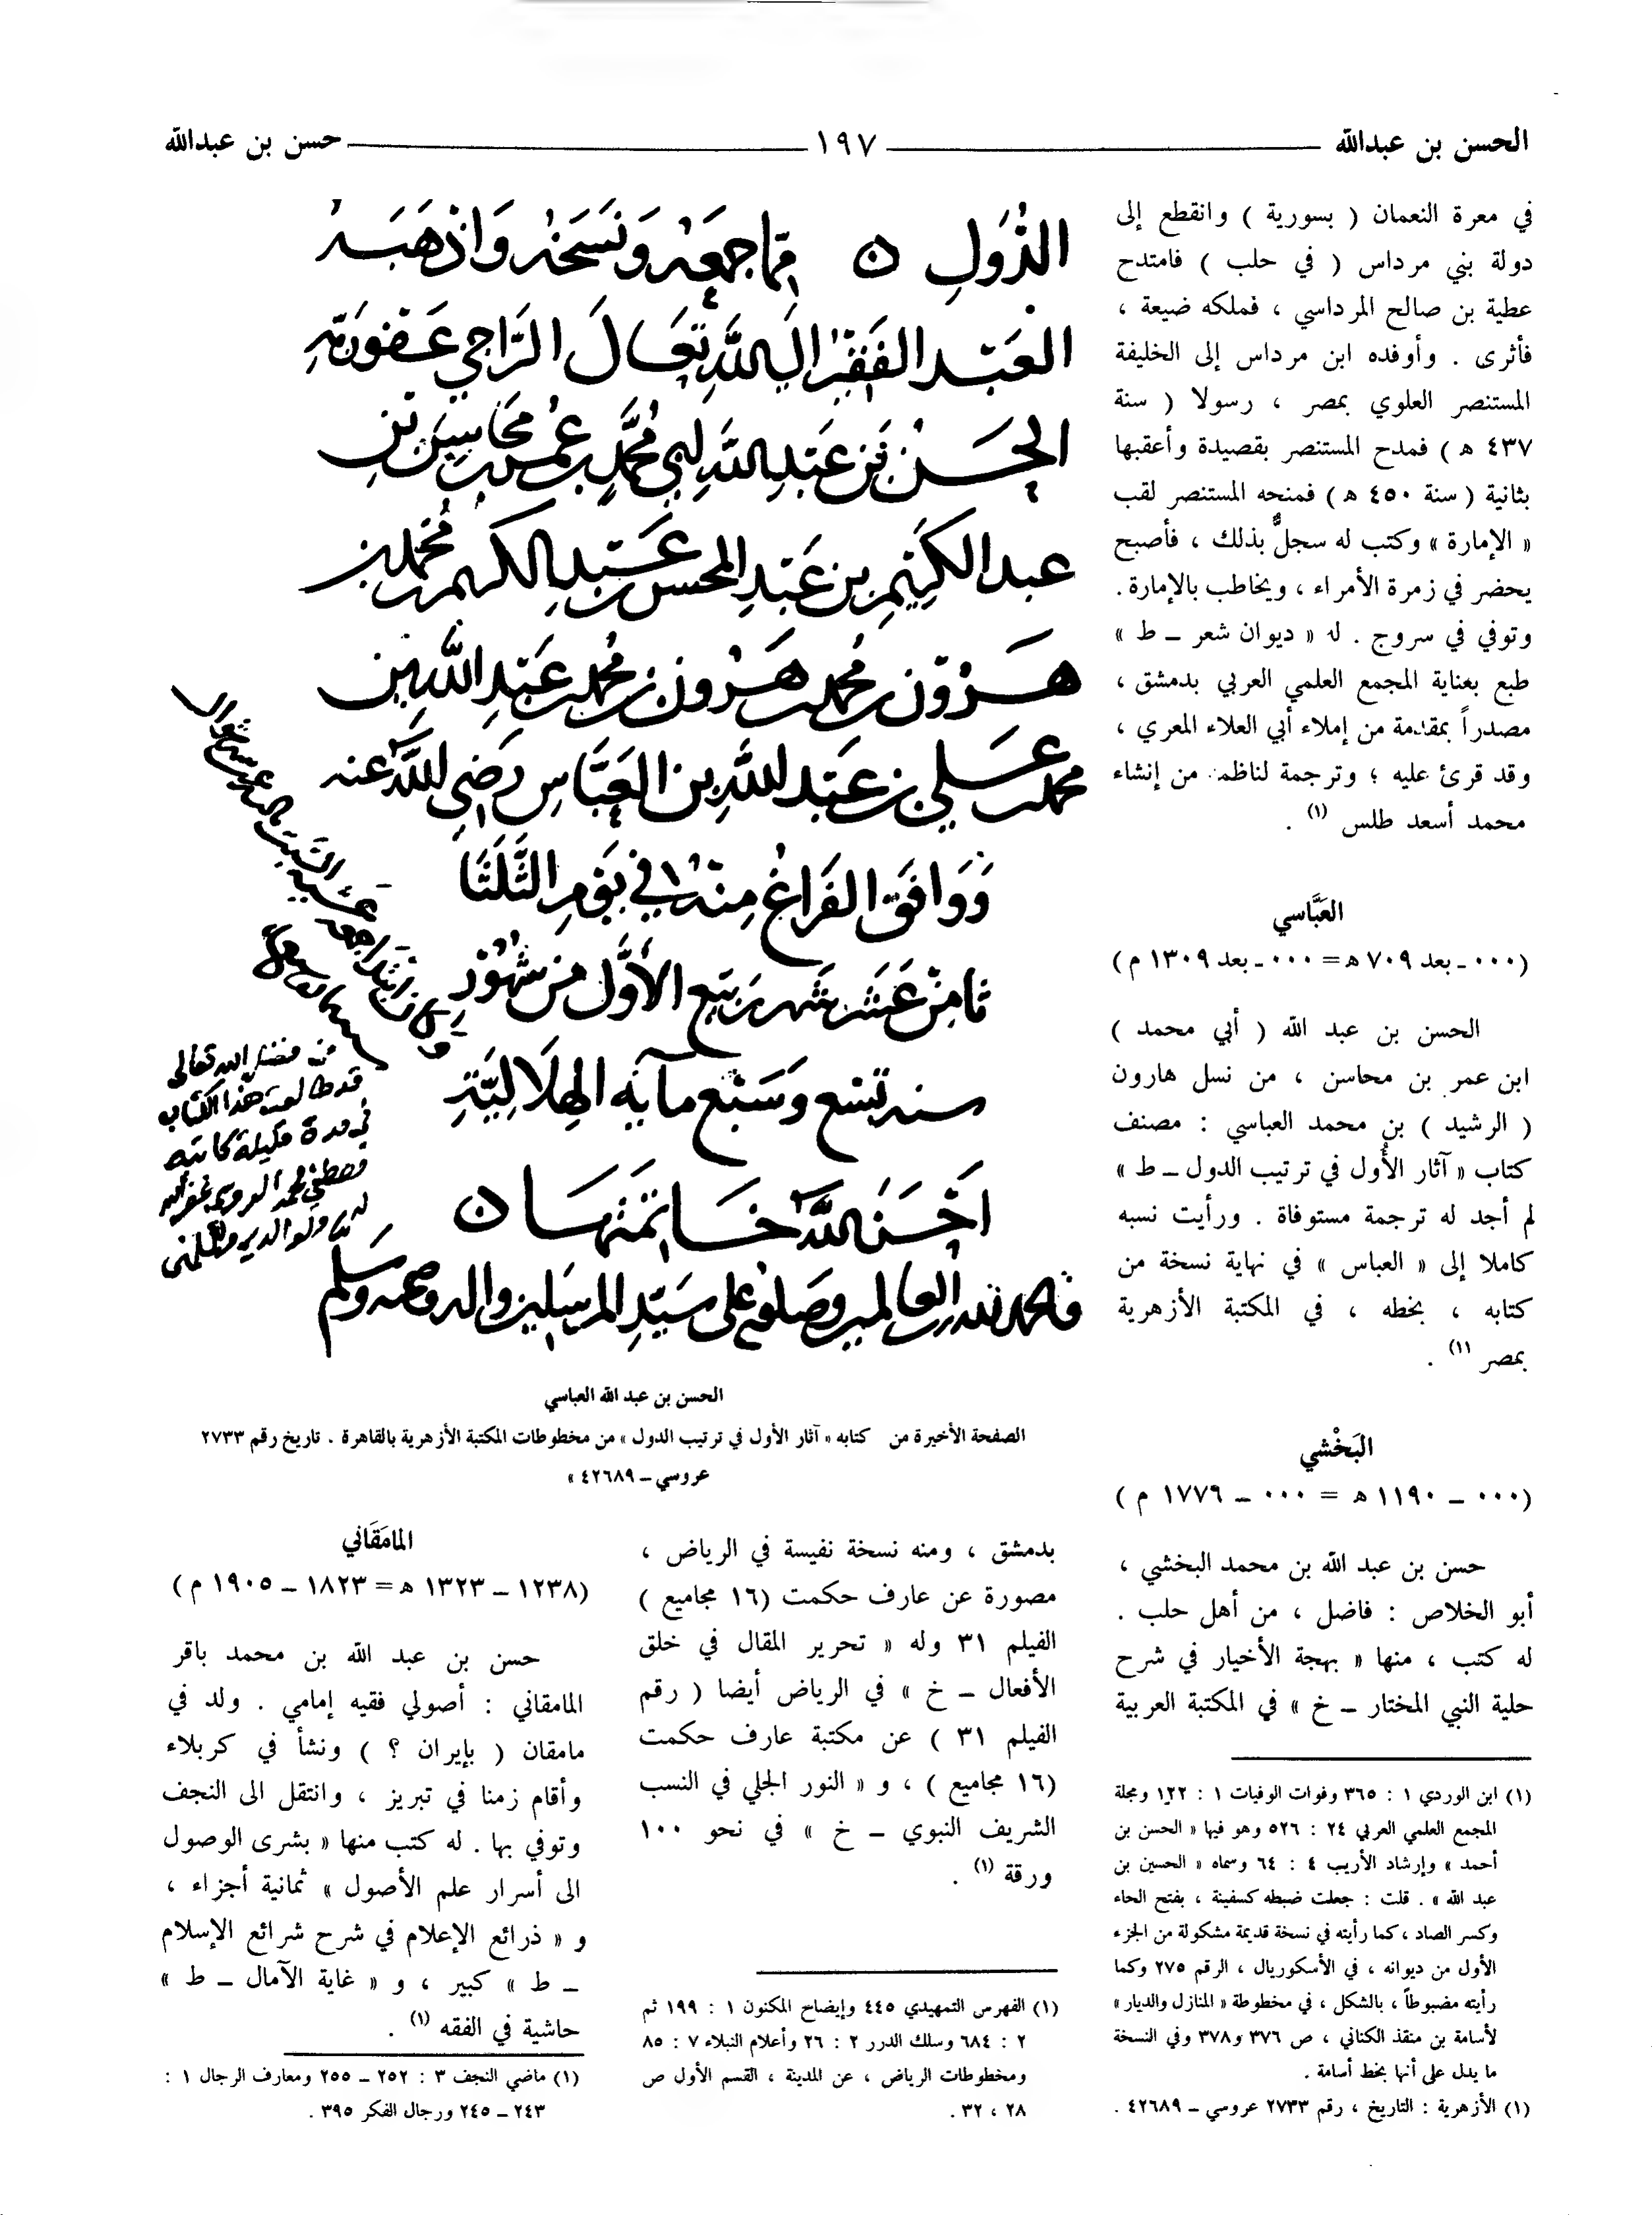 الحسن بن عبدالله ١٩٧ حسن بن عبدالله
في معرة النعمان ( بسورية ) وانقطع إلى
دولة بني مرداس ( في حلب ) فامتدح
عطية بن صالح المرداسي ، فملكه ضيعة ،
فأثرى . وأوفده ابن مرداس إلى الخليفة
المستنصر العلوي بمصر ، رسولا ( سنة
٤٣٧ ه ) فمدح المستنصر بقصيدة وأعقبها
بثانية ( سنة ٤٥٠ ه ) فمنحه المستنصر لقب
« الإمارة » وكتب له سجلٌّ بذلك ، فأصبح
يحضر في زمرة الأمراء ، ويخاطب بالإمارة .
وتوفي في سروج . له « ديوان شعر ــ ط »
طبع بعناية المجمع العلمي العربي بدمشق ،
مصدراً بمقدمة من إملاء أبي العلاء المعري ،
وقد قرئ عليه ؛ وترجمة لناظمه من إنشاء
محمد أسعد طلس (١) .
العَبَّاسي
(٠٠٠ ـ بعد ٧٠٩ ه = ٠٠٠ ـ بعد ١٣٠٩ م )
الحسن بن عبد الله ( أبي محمد )
ابن عمر بن محاسن ، من نسل هارون
( الرشيد ) بن محمد العباسي : مصنف
كتاب « آثار الأُول في ترتيب الدول ــ ط »
لم أجد له ترجمة مستوفاة . ورأيت نسبه
كاملا إلى « العباس » في نهاية نسخة من
كتابه ، بخطه ، في المكتبة الأزهرية
بمصر (١) .
البَخْشي
(٠٠٠ ــ ١١٩٠ ه = ٠٠٠ ــ ١٧٧٩ م )
حسن بن عبد الله بن محمد البخشي ،
أبو الخلاص : فاضل ، من أهل حلب .
له كتب ، منها « بهجة الأخيار في شرح
حلية النبي المختار ــ خ » في المكتبة العربية
(١) ابن الوردي ١ : ٣٦٥ وفوات الوفيات ١ : ١٢٢ ومجلة
المجمع العلمي العربي ٢٤ : ٥٢٦ وهو فيها « الحسن بن
أحمد » وإرشاد الأريب ٤ : ٦٤ وسماه « الحسين بن
عبد الله » . قلت : جعلت ضبطه كسفينة ، بفتح الحاء
وكسر الصاد ، كما رأيته في نسخة قديمة مشكولة من الجزء
الأول من ديوانه ، في الأسكوريال ، الرقم ٢٧٥ وكما
رأيته مضبوطاً ، بالشكل ، في مخطوطة « المنازل والديار »
لأسامة بن منقذ الكناني ، ص ٣٧٦ و ٣٧٨ وفي النسخة
ما يدل على أنها بخط أسامة .
(١) الأزهرية : التاريخ ، رقم ٢٧٣٣ عروسي ــ ٤٢٦٨٩ .
الدُوَلِ ن مِمّا جمَعَهُ وَنَسَخَهُ وَاذْهَبَهُ
العَبْد الفَقِيْر الي اللهِ تَعَالَى الرَّاجي عَفو رَبّهِ
الحَسَن بْن عَبْد الله ابي مُحَمَّد بن عُمَر بن مَحَاسِن بْن
عبد الكَرِيْم بن عَبْد المحسن بن عَبْد الكريم بن مُحمد بن
هَرُوْن بن مُحمد بن هَرُوْن بن مُحمد بن عَبْدِ الله بن
محمد بن عَلي بن عَبْد الله بن العَبَّاس رَضِيَ الله عَنه
وَوَافَقَ الفَرَاغُ مِنْهُ في يَوْمِ الثَّلَثَا
ثامِنْ عَشَر شَهر رَبيْع الأوّل مِنْ شُهُوْرِ
سنه تِسْع وَسَبْع مايَه الهِلَالِيَّةِ
اَحْسَنَ الله خَاتِمَتَهَا ن
والحمد لله رب العالمين وصَلوته على سَيّدِ المرسَلين واله وصحبه وسَلم
من فضل الله تعالى
قد طالعت هذا الكتاب
في مدة قليلة كاتبه
مصطفى محمد العروسي غفر الله
له ولوالديه والمسلمين
الحسن بن عبد الله العباسي
الصفحة الأخيرة من كتابه « آثار الأول في ترتيب الدول » من مخطوطات المكتبة الأزهرية بالقاهرة . تاريخ رقم ٢٧٣٣
عروسي ــ ٤٢٦٨٩ »
بدمشق ، ومنه نسخة نفيسة في الرياض ،
مصورة عن عارف حكمت (١٦ مجاميع )
الفيلم ٣١ وله « تحرير المقال في خلق
الأفعال ــ خ » في الرياض أيضا ( رقم
الفيلم ٣١ ) عن مكتبة عارف حكمت
(١٦ مجاميع ) ، و « النور الجلي في النسب
الشريف النبوي ــ خ » في نحو ١٠٠
ورقة (١) .
(١) الفهرس التمهيدي ٤٤٥ وإيضاح المكنون ١ : ١٩٩ ثم
٢ : ٦٨٤ وسلك الدرر ٢ : ٢٦ وأعلام النبلاء ٧ : ٨٥
ومخطوطات الرياض ، عن المدينة ، القسم الأول ص
٢٨ ، ٣٢ .
المامَقَاني
(١٢٣٨ ــ ١٣٢٣ ه = ١٨٢٣ ــ ١٩٠٥ م )
حسن بن عبد الله بن محمد باقر
المامقاني : أصولي فقيه إمامي . ولد في
مامقان ( بإيران ؟ ) ونشأ في كربلاء
وأقام زمنا في تبريز ، وانتقل الى النجف
وتوفي بها . له كتب منها « بشرى الوصول
الى أسرار علم الأصول » ثمانية أجزاء ،
و « ذرائع الإعلام في شرح شرائع الإسلام
ــ ط » كبير ، و « غاية الآمال ــ ط »
حاشية في الفقه (١) .
(١) ماضي النجف ٣ : ٢٥٢ ــ ٢٥٥ ومعارف الرجال ١ :
٢٤٣ ــ ٢٤٥ ورجال الفكر ٣٩٥ .